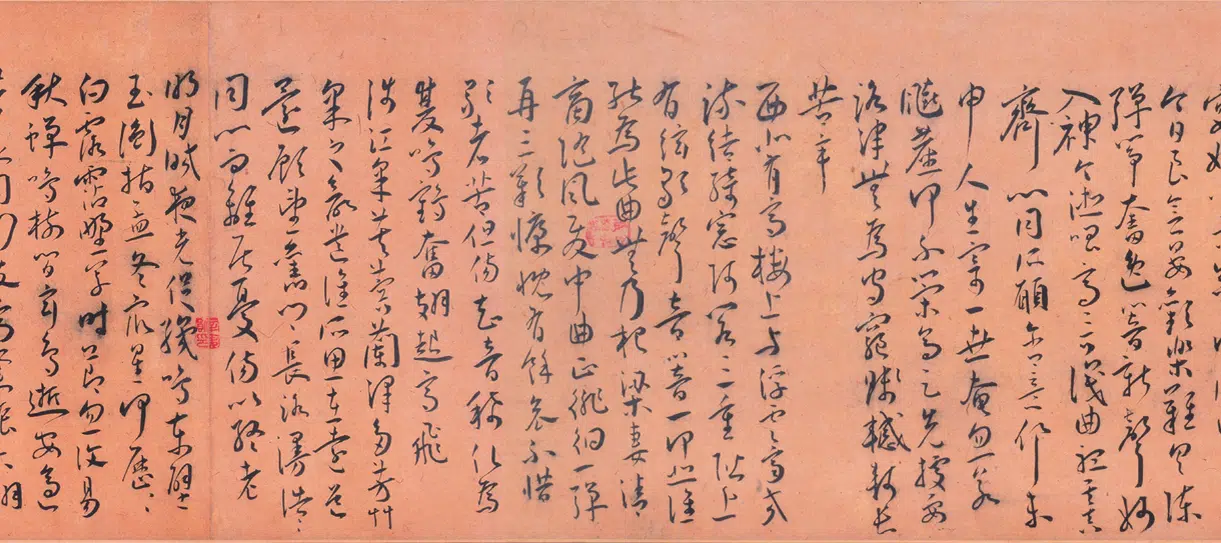 今日良宴會歡樂難具陳
彈箏奮逸響新聲妙
入神令德唱高言識曲聽其真
齊心同所願含意俱未
申人生寄一世奄忽若
飇塵何不策高足先據要
路津無為守窮賤轗軻長
苦辛
西北有高樓上與浮雲齊交
疏結綺窗阿閣三重階上
有弦歌聲音響一何悲誰
能為此曲無乃杞梁妻清
商隨風發中曲正徘徊一彈
再三歎慷慨有餘哀不惜
歌者苦但傷知音稀化為
雙鳴鶴奮翅起高飛
涉江采芙蓉蘭澤多芳艸
采之欲遺誰所思在遠道
還顧望舊鄉長路漫浩浩
同心而離居憂傷以終老
明月皎夜光促織鳴東壁
玉衡指孟冬衆星何歷歷
白露霑野草時節忽復易
秋蟬鳴樹間玄鳥逝安適